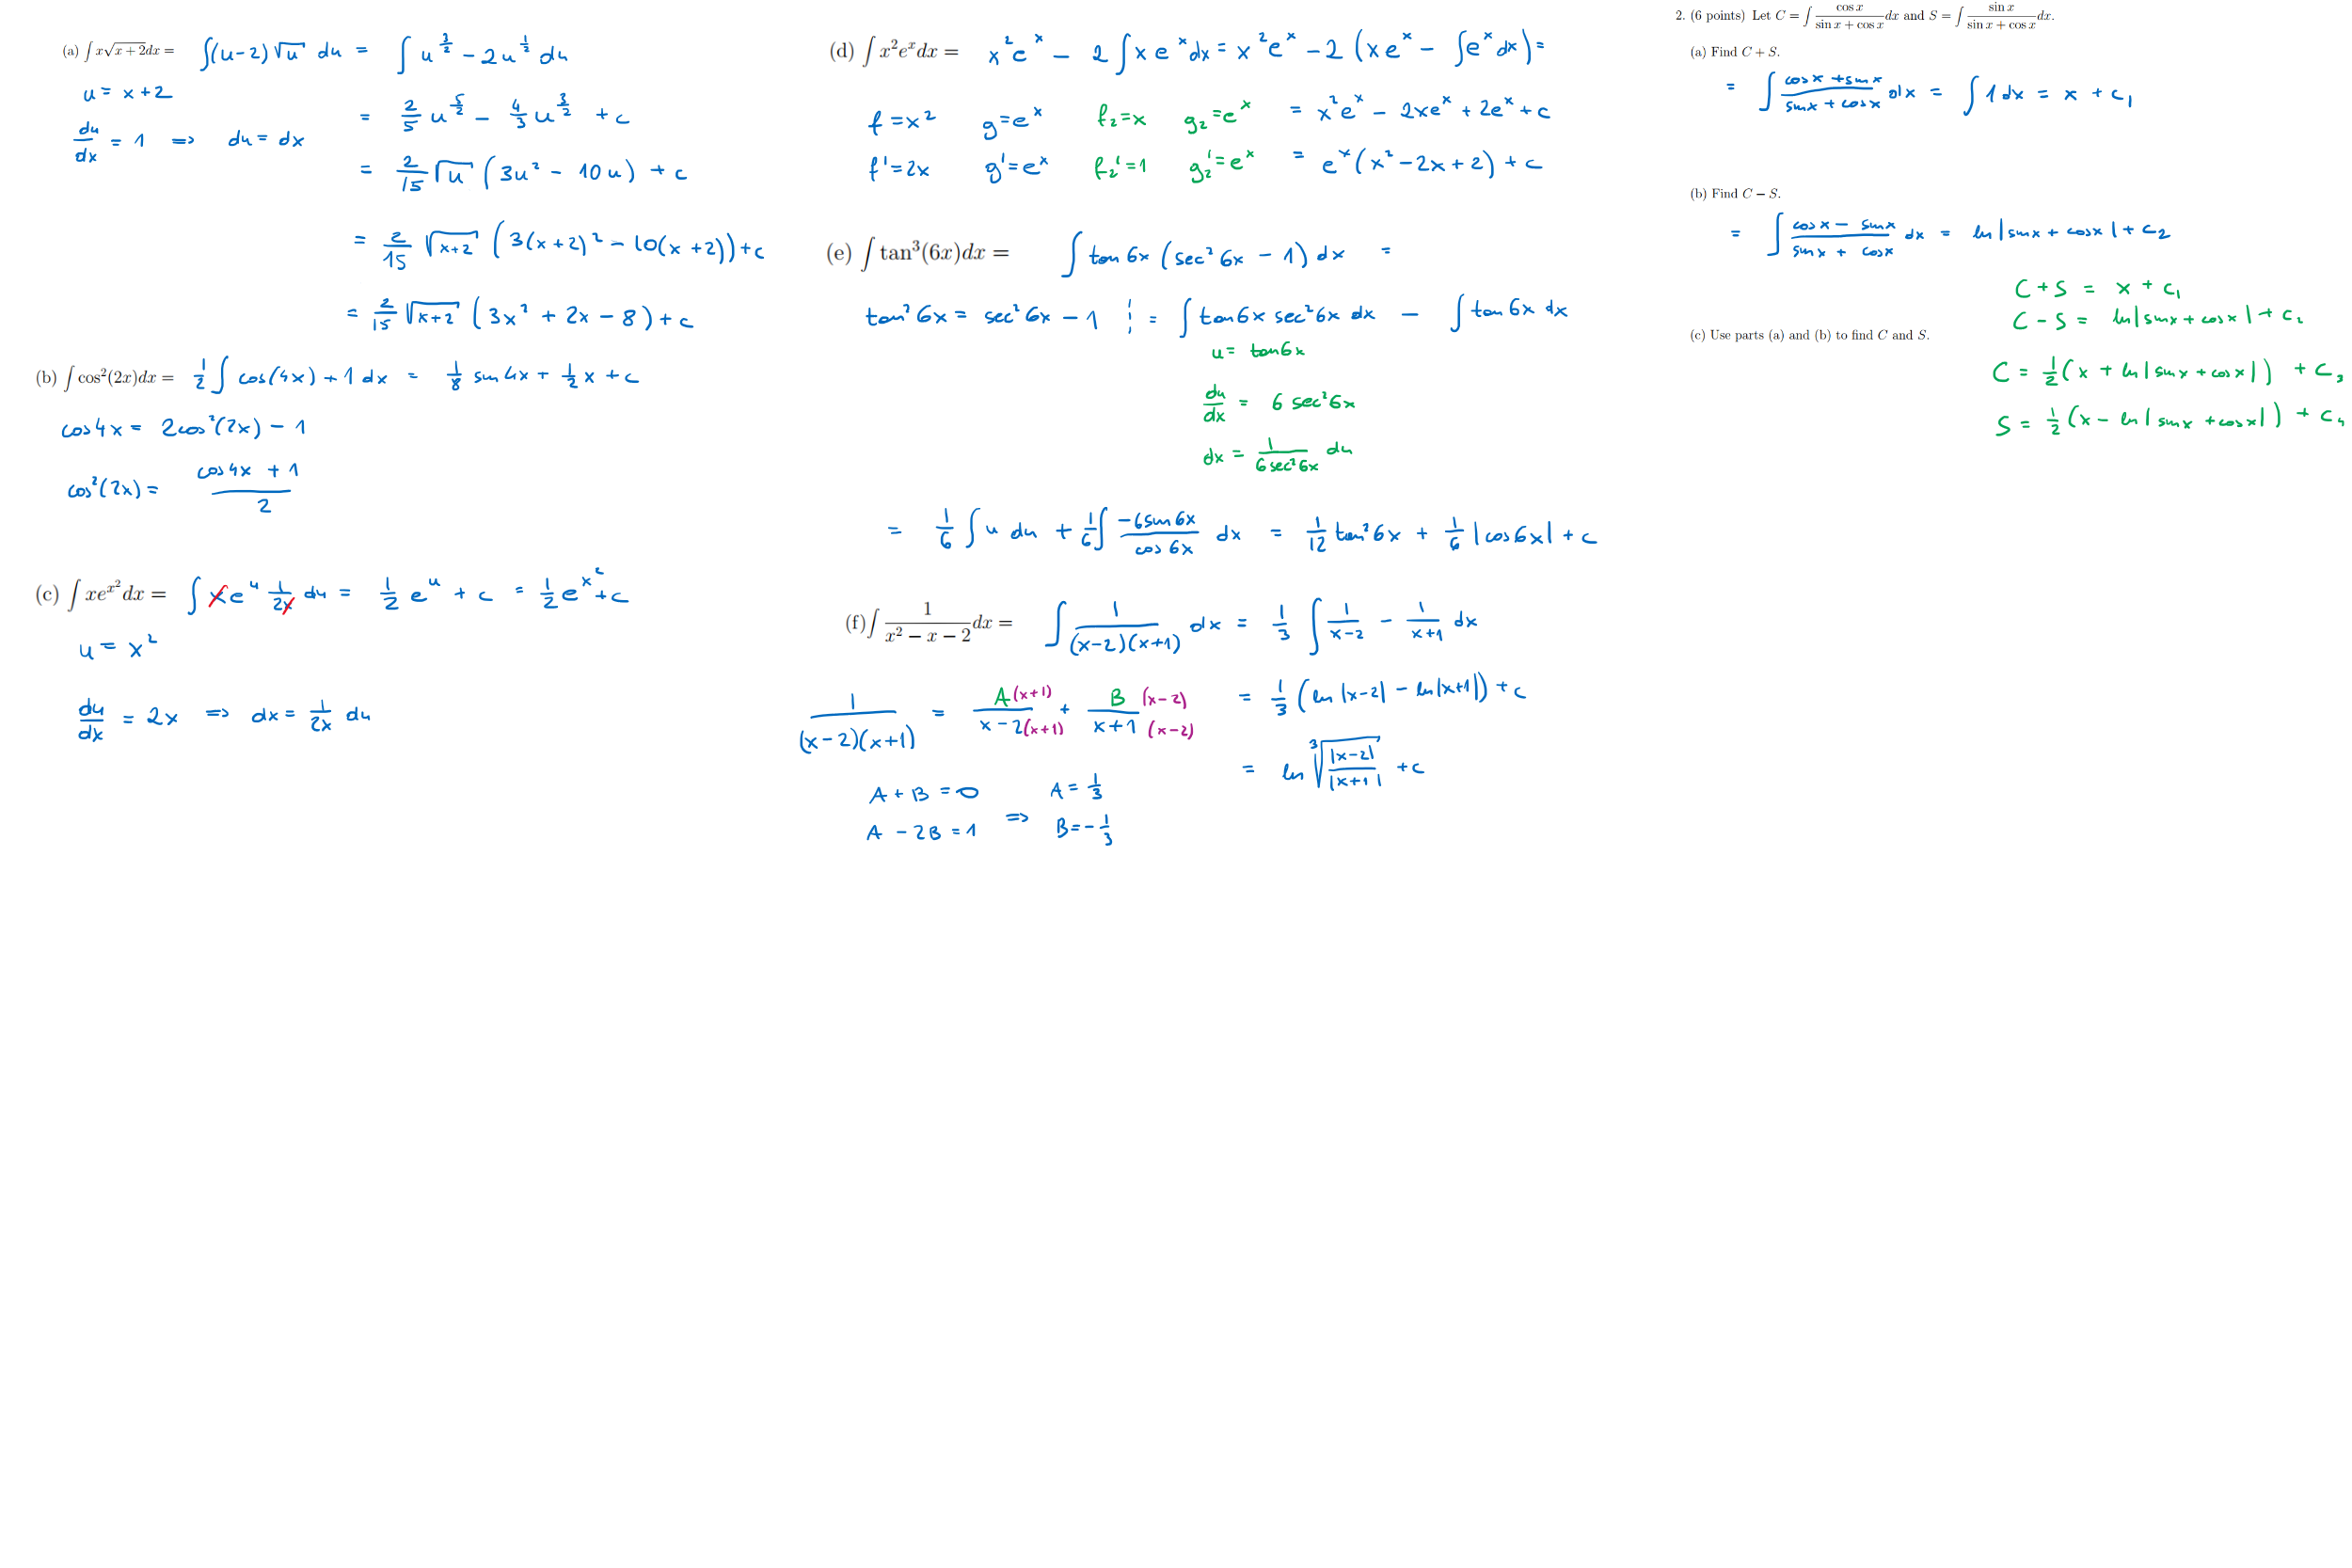 (a) ∫ x√(x + 2) dx = ∫(u-2) √u du = ∫ u^(3/2) - 2u^(1/2) du
u = x+2
= 2/5 u^(5/2) - 4/3 u^(3/2) + c
du/dx = 1 => du = dx
= 2/15 √u (3u² - 10u) + c
= 2/15 √(x+2) (3(x+2)² - 10(x+2)) + c
= 2/15 √(x+2) (3x² + 2x - 8) + c
(b) ∫ cos²(2x)dx = 1/2 ∫ cos(4x) + 1 dx = 1/8 sin 4x + 1/2 x + c
cos 4x = 2cos²(2x) - 1
cos²(2x) = (cos 4x + 1)/2
(c) ∫ xe^(x²) dx = ∫ x e^u 1/(2x) du = 1/2 e^u + c = 1/2 e^(x²) + c
u = x²
du/dx = 2x => dx = 1/(2x) du
(d) ∫ x²e^x dx = x²e^x - 2 ∫ x e^x dx = x²e^x - 2 (xe^x - ∫e^x dx) =
f = x² g = e^x f₂ = x g₂ = e^x = x²e^x - 2xe^x + 2e^x + c
f' = 2x g' = e^x f₂' = 1 g₂' = e^x = e^x (x² - 2x + 2) + c
(e) ∫ tan³(6x)dx = ∫ tan 6x (sec² 6x - 1) dx =
tan² 6x = sec² 6x - 1 ¦ = ∫ tan 6x sec² 6x dx - ∫ tan 6x dx
u = tan 6x
du/dx = 6 sec² 6x
dx = 1/(6 sec² 6x) du
= 1/6 ∫ u du + 1/6 ∫ (-6 sin 6x)/(cos 6x) dx = 1/12 tan² 6x + 1/6 |cos 6x| + c
(f) ∫ 1/(x² - x - 2) dx = ∫ 1/((x-2)(x+1)) dx = 1/3 ∫ 1/(x-2) - 1/(x+1) dx
1/((x-2)(x+1)) = A(x+1)/(x-2(x+1)) + B(x-2)/(x+1(x-2))
= 1/3 (ln |x-2| - ln|x+1|) + c
= ln ∛(|x-2|/|x+1|) + c
A + B = 0 => A = 1/3
A - 2B = 1 B = -1/3
2. (6 points) Let C = ∫ cos x/(sin x + cos x) dx and S = ∫ sin x/(sin x + cos x) dx.
(a) Find C + S.
= ∫ (cos x + sin x)/(sin x + cos x) dx = ∫ 1 dx = x + c₁
(b) Find C − S.
= ∫ (cos x - sin x)/(sin x + cos x) dx = ln |sin x + cos x| + c₂
C + S = x + c₁
C - S = ln|sin x + cos x| + c₂
(c) Use parts (a) and (b) to find C and S.
C = 1/2 (x + ln |sin x + cos x|) + c₃
S = 1/2 (x - ln |sin x + cos x|) + c₄